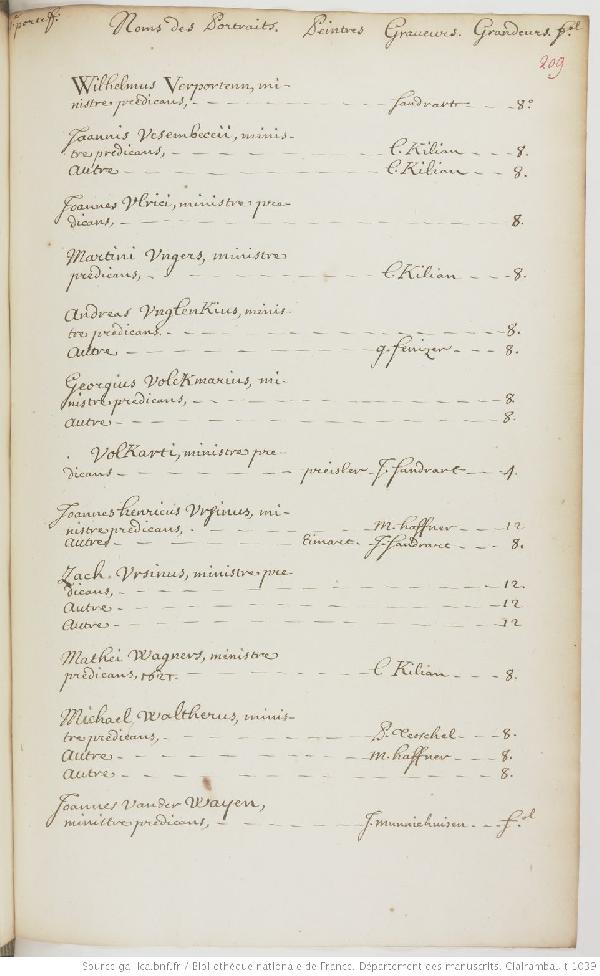 portef. Noms des Portraits. Peintres Graveurs. Grandeurs. f.ol
209
Wilhelmus Verportenn, mi-
nistre predicans, - - - Sandrart - - 8.o
Joannis Vesembeccii, minis-
tre predicans, - - - L. Kilian - - 8.
Autre - - - L. Kilian - - 8.
Joannes Vlrici, ministre pre-
dicans, - - - 8.
Martini Vngers, ministre
predicans, - - - L. Kilian - - 8.
Andreas VnglenKius, minis-
tre predicans - - - 8.
Autre - - - g. fenizer - - 8.
Georgius VolcKmarius, mi-
nistre predicans, - - - 8
Autre - - - 8.
. VolKarti, ministre pre-
dicans - - - preisler - J. Sandrart - - 4.
Joannes henricus Vrsinus, mi-
nistre predicans, - - - M. haffner - - 12
Autre - - - Eimart - J. Sandrart - - 8.
Zach. Vrsinus, ministre pre-
dicans, - - - 12.
Autre - - - 12
Autre - - - 12
Mathei Wagners, ministre
predicans, 1621. - - - L Kilian - - 8.
Michael Waltherus, minis-
tre predicans, - - - - - 8.
Autre - - - M. haffner - - 8.
Autre - - - 8.
Joannes Vander Wayen,
ministre predicans, - - - J. munnichuisen - - f.ol
Source gallica.bnf.fr / Bibliothèque nationale de France. Département des manuscrits. Clairambault 1039